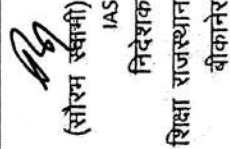 (सौरभ स्वामी)
IAS
निदेशक
शिक्षा राजस्थान
बीकानेर